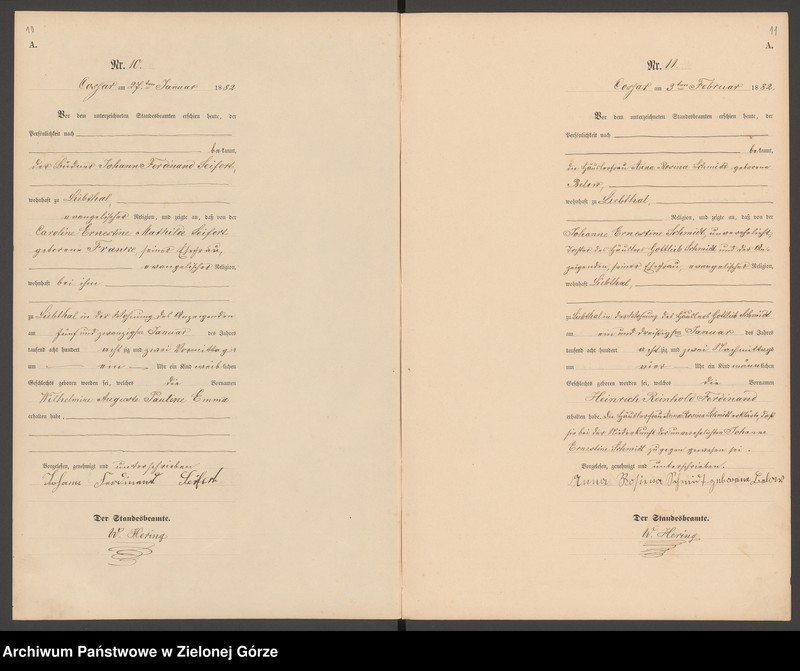 10
A.
Nr. 10.
Cossar am 27.ten Januar 1882
Vor dem unterzeichneten Standesbeamten erschien heute, der
Persönlichkeit nach
bekannt,
der Büdner Johann Ferdinand Seifert,
wohnhaft zu Liebthal,
evangelischer Religion, und zeigte an, daß von der
Caroline Ernestine Mathilde Seifert
geborene Franse, seiner Ehefrau,
evangelischer Religion,
wohnhaft bei ihm
zu Liebthal in der Wohnung des Anzeigenden
am fünf und zwanzigsten Januar des Jahres
tausend acht hundert achtzig und zwei Vormittags
um ein Uhr ein Kind weiblichen
Geschlechts geboren worden sei, welches die Vornamen
Wilhelmine Auguste Pauline Emma
erhalten habe.
Vorgelesen, genehmigt und unterschrieben
Johann Ferdinand Seifert
Der Standesbeamte.
W. Hering
11
A.
Nr. 11.
Cossar am 3ten Februar 1882.
Vor dem unterzeichneten Standesbeamten erschien heute, der
Persönlichkeit nach
bekannt,
die Häuslerfrau Anna Rosina Schmidt geborene
wohnhaft zu Liebthal,
Religion, und zeigte an, daß von der
Johanne Ernestine Schmidt, unverehelicht,
Tochter des Häusler Gottlieb Schmidt und der An-
zeigenden, seiner Ehefrau, evangelischer Religion,
wohnhaft Liebthal,
zu Liebthal in der Wohnung des Häuslers Gottlieb Schmidt
am ein und dreißigsten Januar des Jahres
tausend acht hundert achtzig und zwei Nachmittags
um vier Uhr ein Kind männlichen
Geschlechts geboren worden sei, welches die Vornamen
Heinrich Reinhold Ferdinand
erhalten habe. Die Häuslerfrau Anna Rosina Schmidt erklärte, daß
sie bei der Niederkunft der unverehelichten Johanne
Ernestine Schmidt zugegen gewesen sei.
Vorgelesen, genehmigt und unterschrieben.
Anna Rosiena Schmidt geborene
Der Standesbeamte.
W. Hering
Archiwum Państwowe w Zielonej Górze